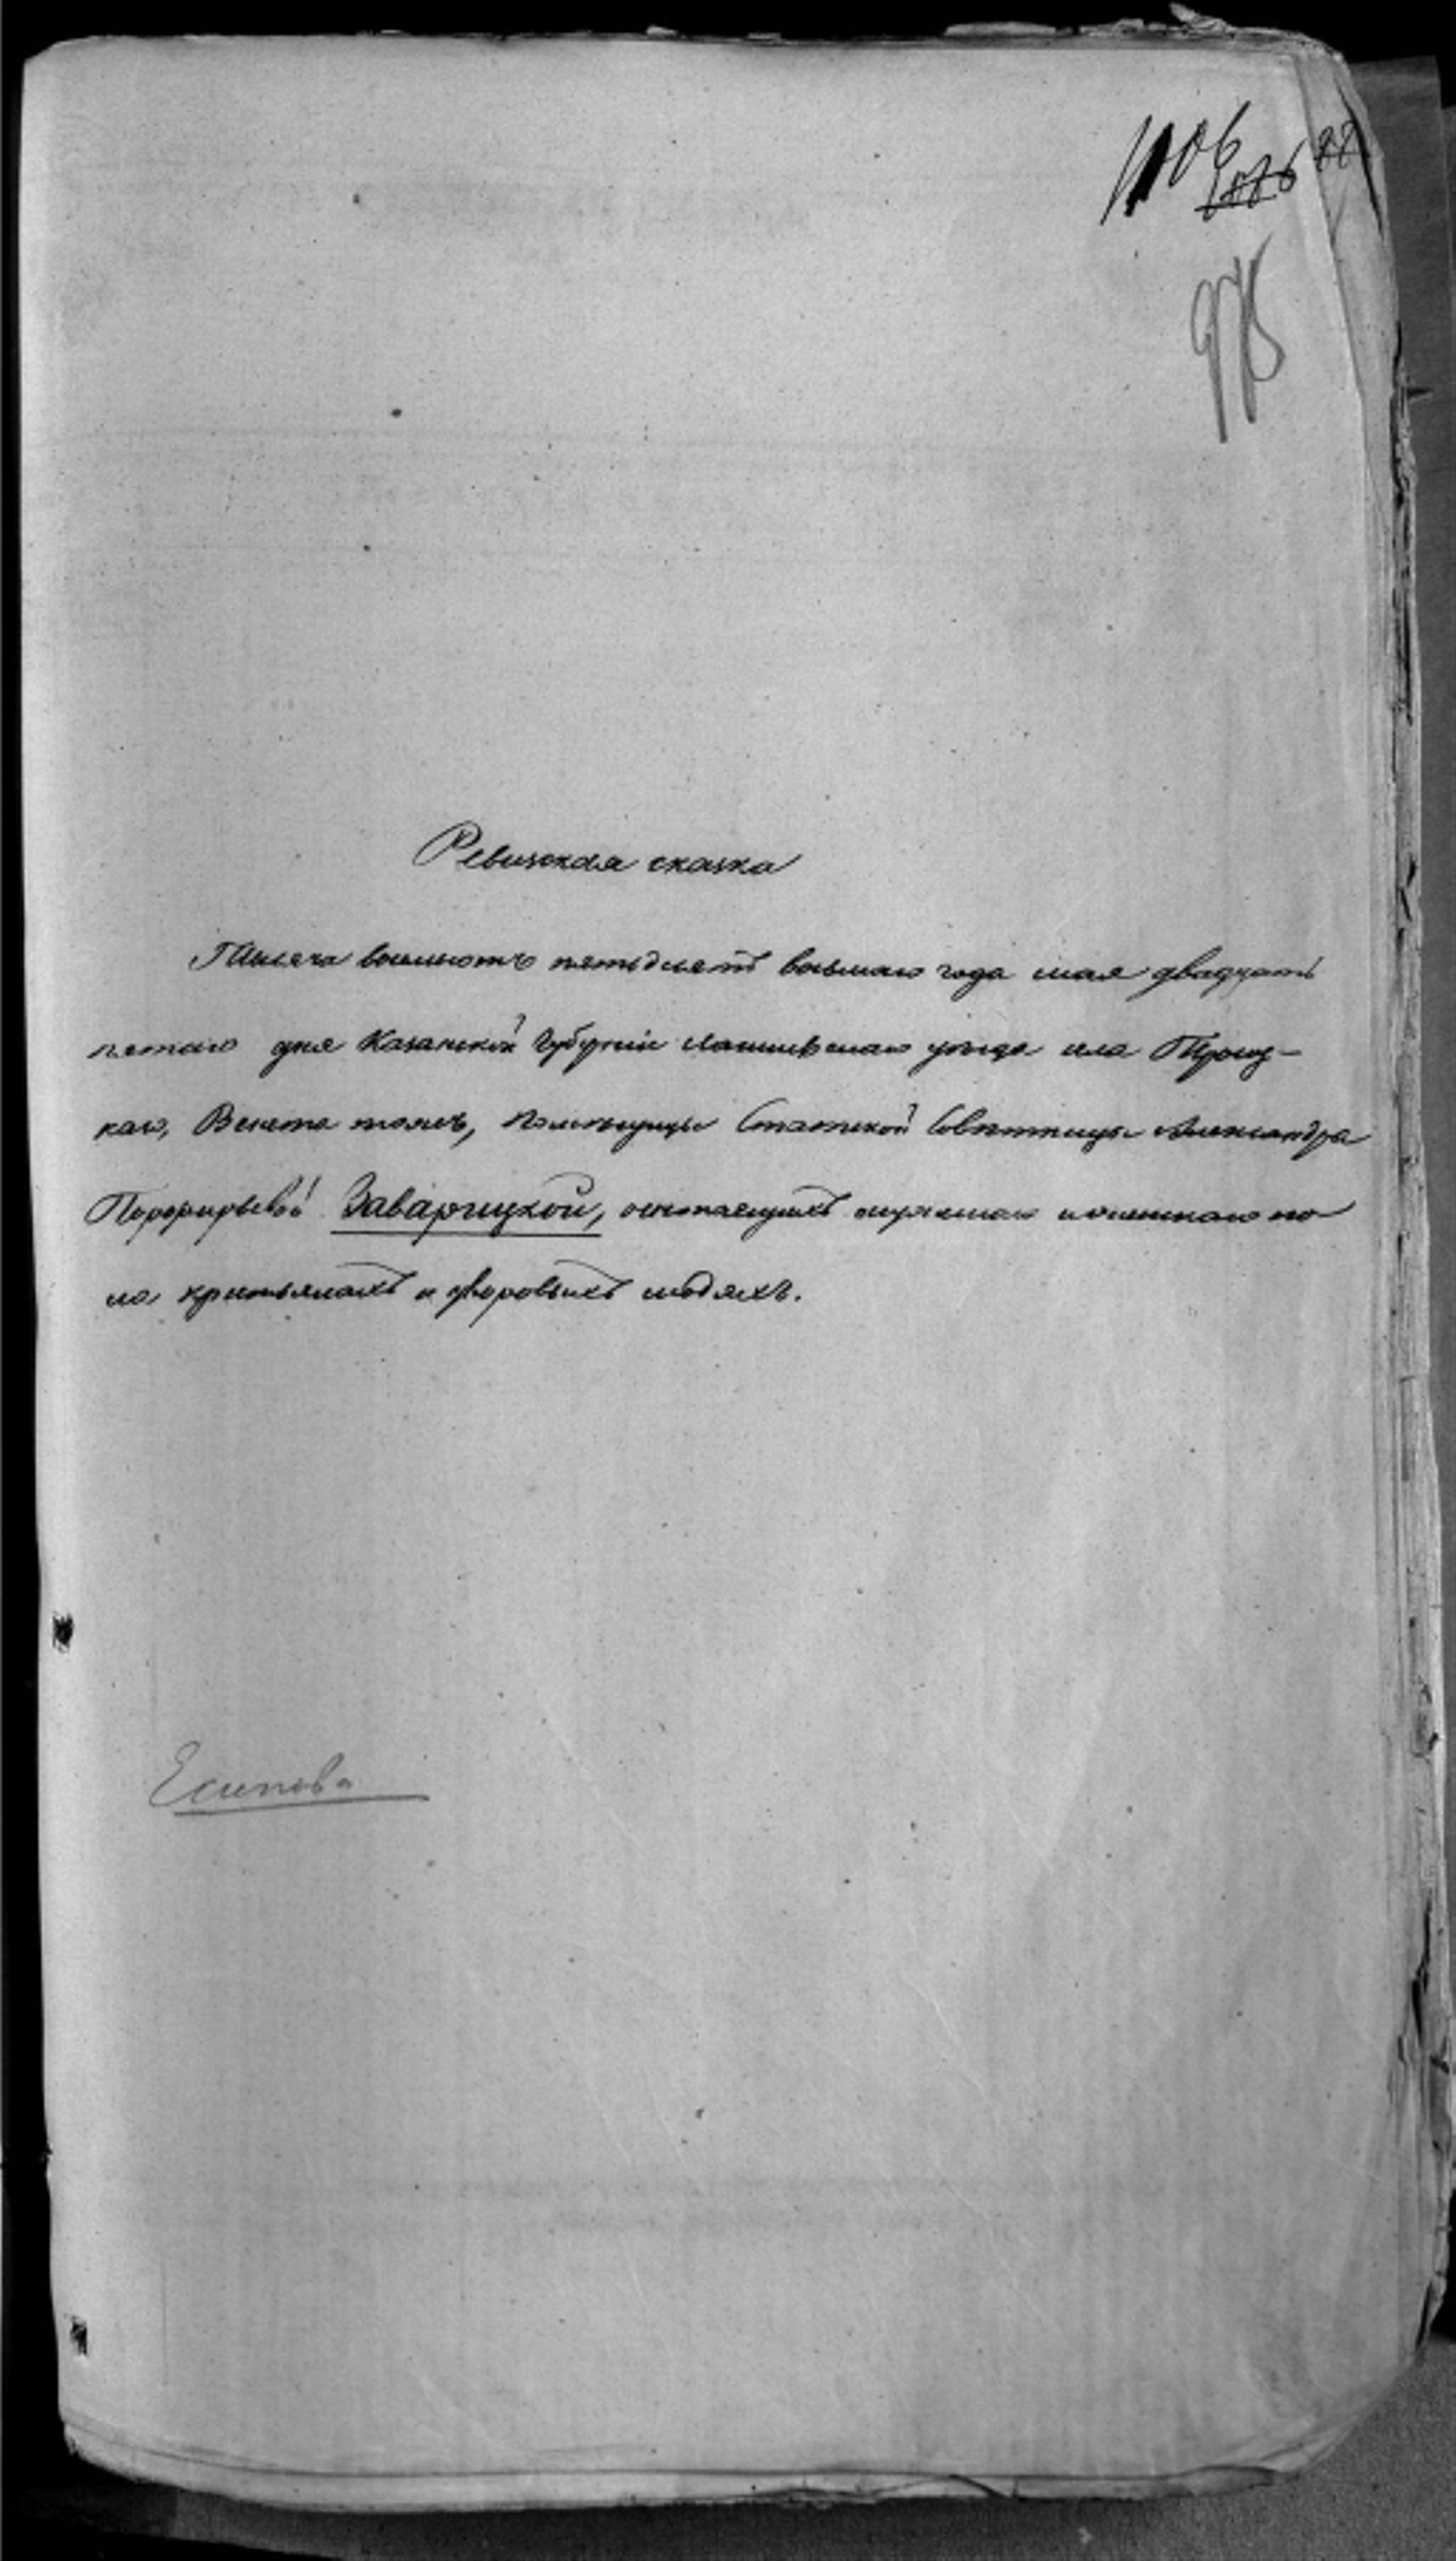 1106
1086
975
Ревизская сказка
Тысяча восемьсотъ пятьдесятъ восьмаго года мая двадцать
пятаго дня Казанской Губерніи Лаишевскаго уѣзда села Троиц-
каго, тожъ, помѣщицы Статской Совѣтницы Александры
Порфирьевой Заварицкой, о состоящихъ мужескаго и женскаго по-
ла крестьянахъ и дворовыхъ людяхъ.
Есипова